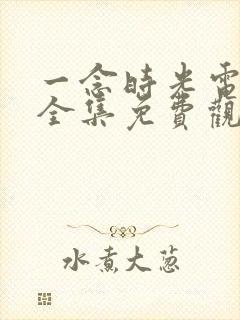 一念時光電
全集免費觀
水煮大蔥